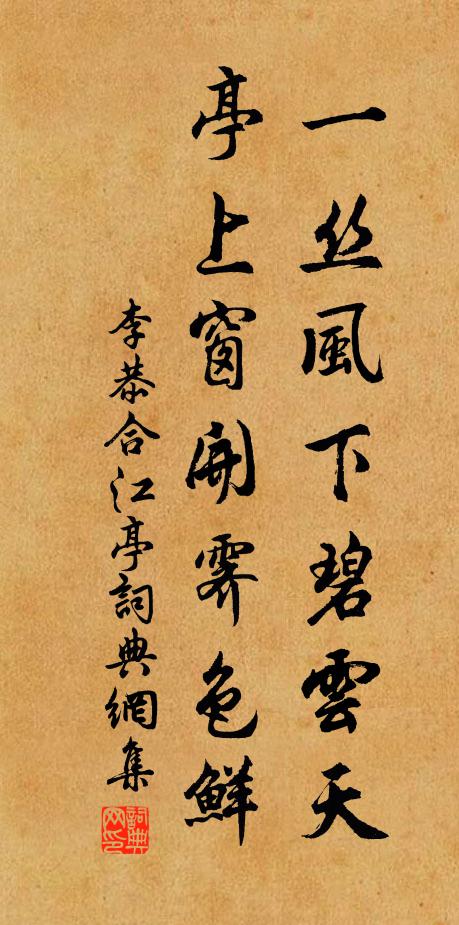 一丝風下碧雲天
亭上窗開霽色鮮
李恭合江亭詞典網集
詞典网印